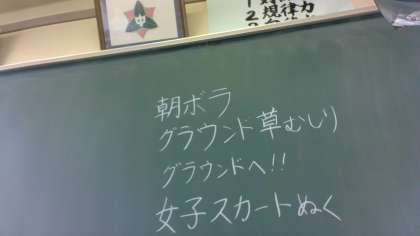 1
2 規律力
朝ボラ
グラウンド草むしり
グラウンドへ!!
女子スカートぬく